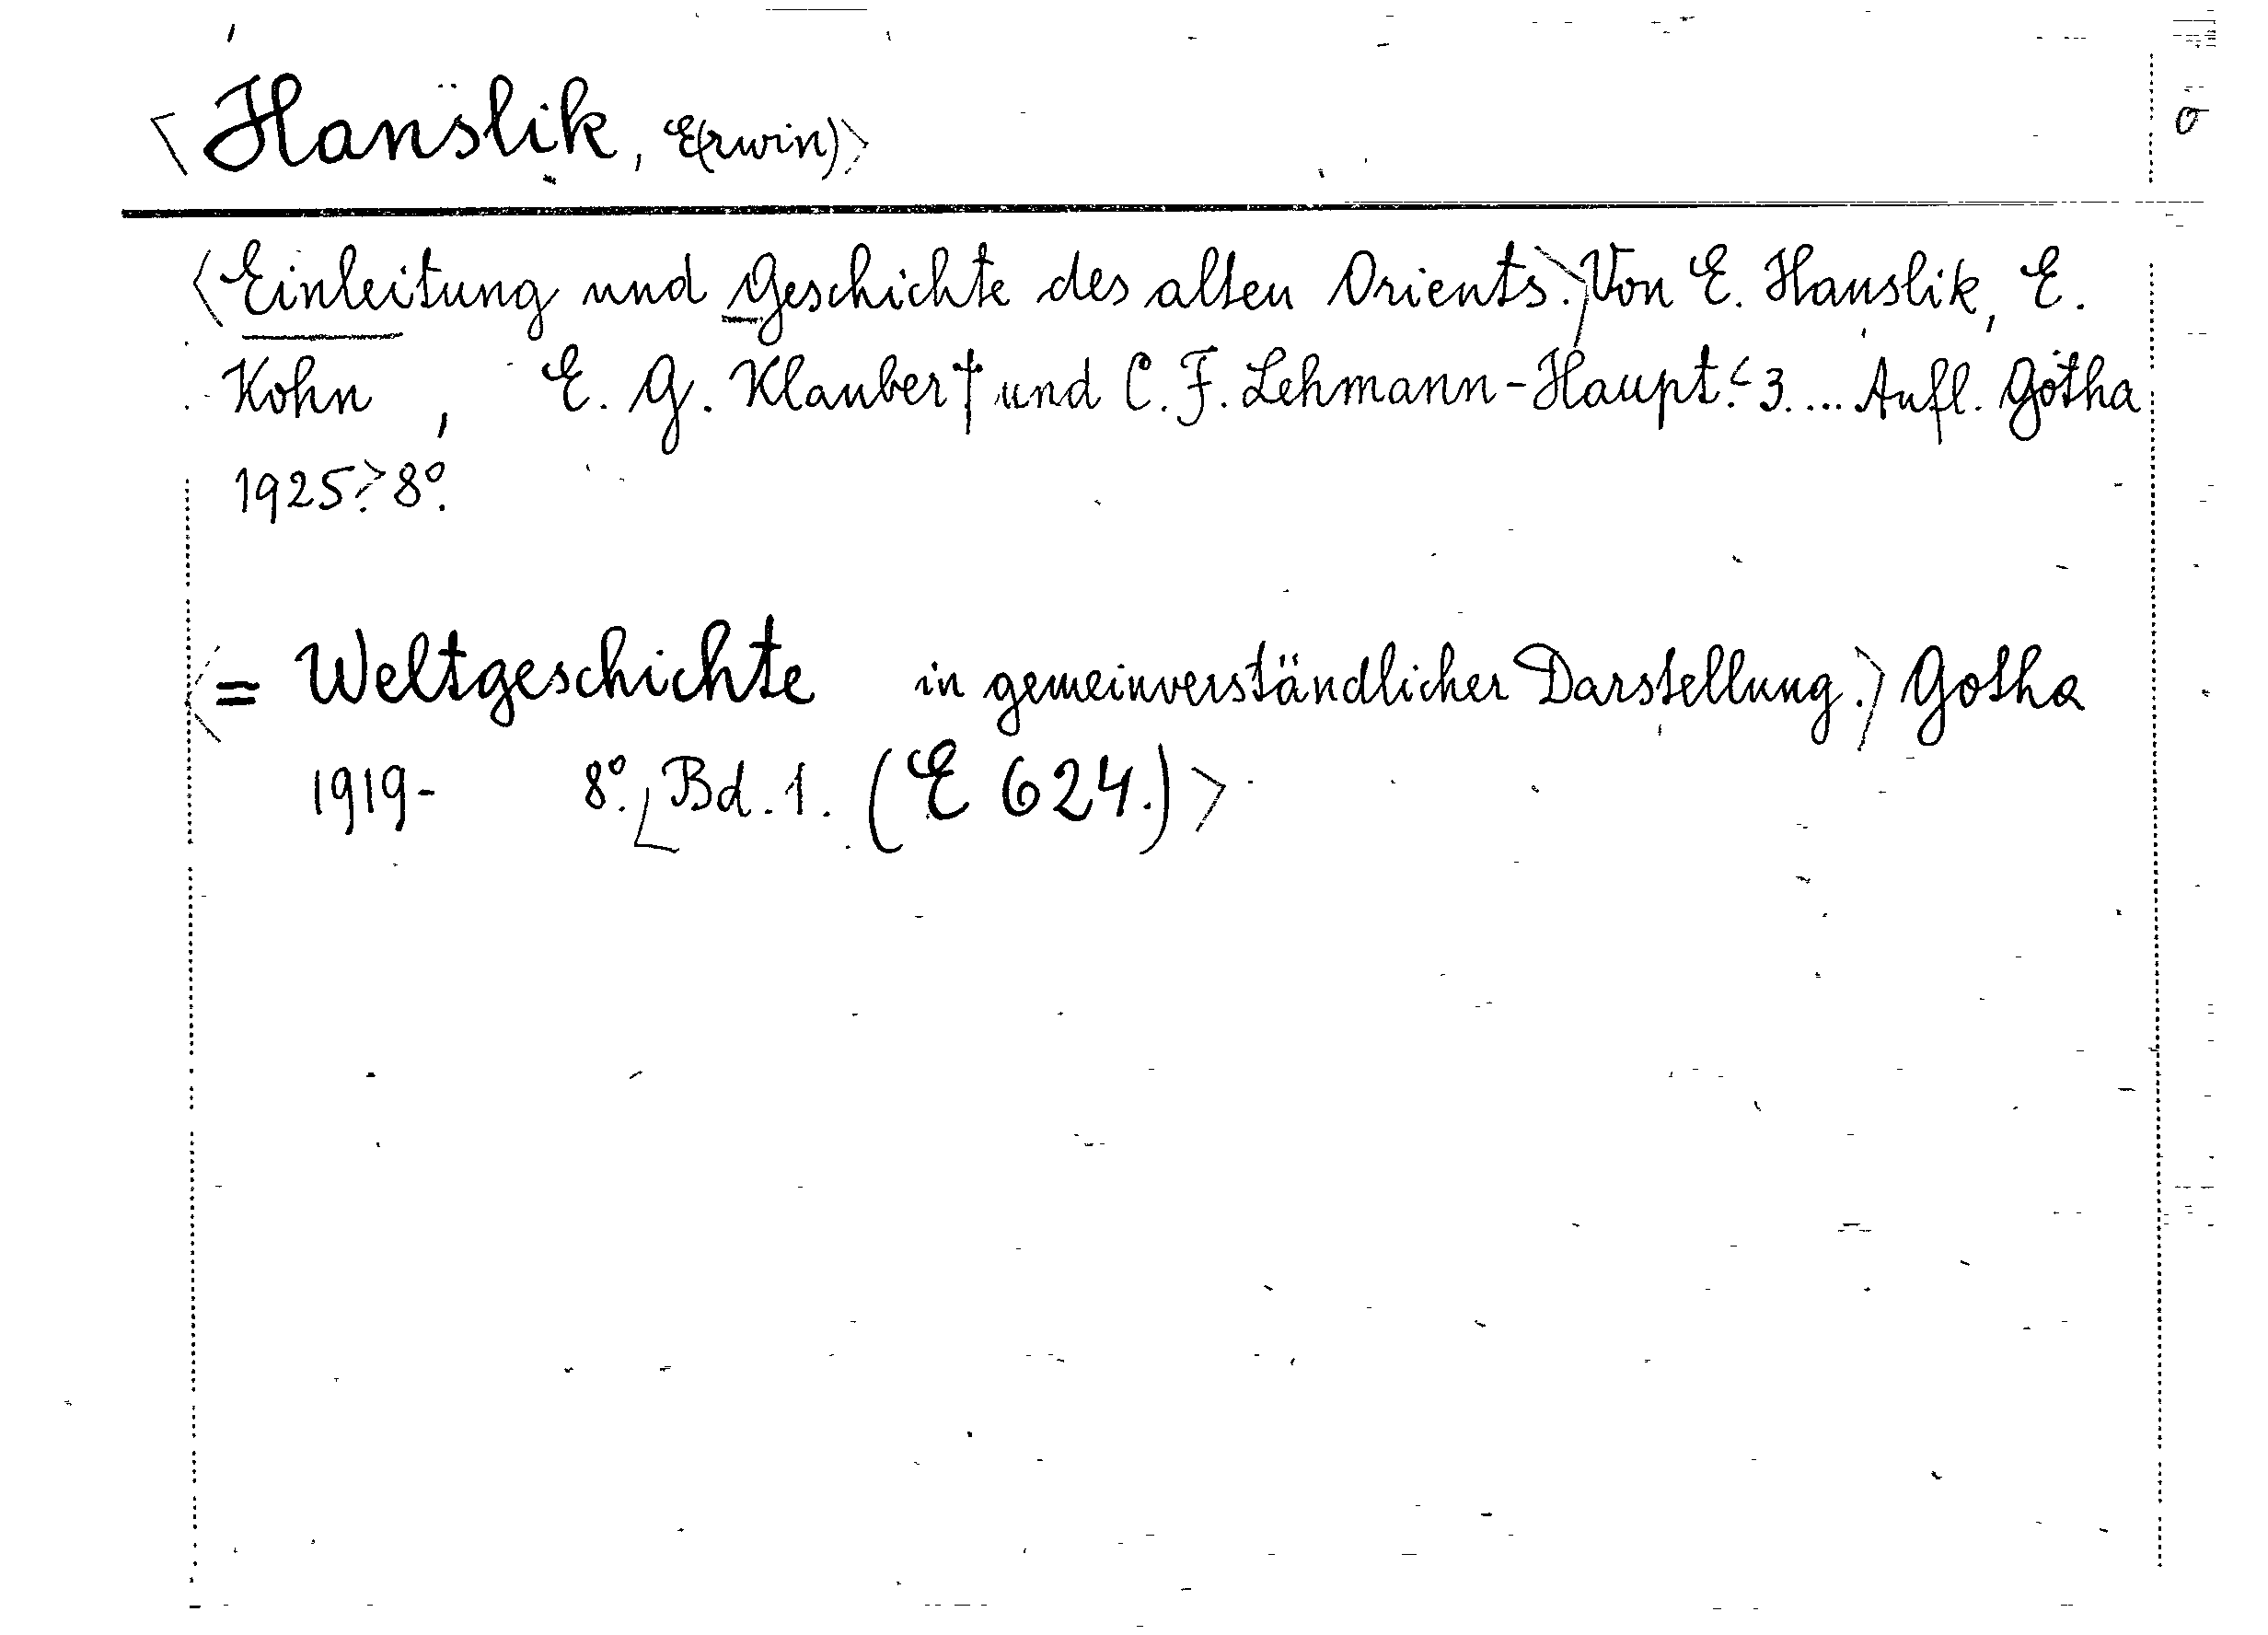 <Hanslik, E(rwin)> σ
<Einleitung und Geschichte des alten Orients.> Von E. Hanslik, E.
Kohn, E. G. Klauber † und C. F. Lehmann-Haupt. <3. ... Aufl. Gotha
1925.> 8°.
<= Weltgeschichte in gemeinverständlicher Darstellung.> Gotha
1919- 8°. <Bd. 1. (E 624.)>